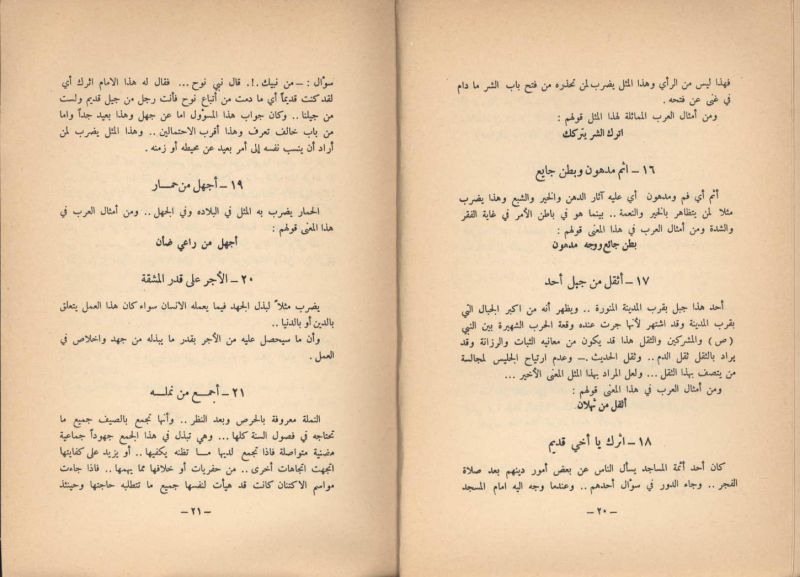 فهذا ليس من الرأي وهذا المثل يضرب لمن تحذره من فتح باب الشر ما دام
في غنى عن فتحه .
ومن أمثال العرب المماثلة لهذا المثل قولهم :
اترك الشر يتركك
١٦ – اثم مدهون وبطن جايع
أثم أي فم ومدهون أي عليه آثار الدهن والخير والشبع وهذا يضرب
مثلا لمن يتظاهر بالخير والنعمة .. بينما هو في باطن الأمر في غاية الفقر
والشدة ومن أمثال العرب في هذا المعنى قولهم :
بطن جائع ووجه مدهون
١٧ – أثقل من جبل أحد
أحد هذا جبل بقرب المدينة المنورة .. ويظهر أنه من اكبر الجبال التي
بقرب المدينة وقد اشتهر لأنها جرت عنده وقعة الحرب الشهيرة بين النبي
( ص ) والمشركين والثقل هذا قد يكون من معانيه الثبات والرزانة وقد
يراد بالثقل ثقل الدم .. وثقل الحديث .– وعدم ارتياح الجليس لمجالسة
من يتصف بهذا الثقل ... ولعل المراد بهذا المثل المعنى الأخير ...
ومن أمثال العرب في هذا المعنى قولهم :
أثقل من ثهلان
١٨ – اثرك يا أخي قديم
كان أحد أئمة المساجد يسأل الناس عن بعض أمور دينهم بعد صلاة
الفجر .. وجاء الدور في سؤال أحدهم .. وعندما وجه اليه امام المسجد
– ٢٠ –
سؤال : – من نبيك .!. قال نبي نوح ... فقال له هذا الامام اثرك أي
لقد كنت قديماً أي ما دمت من أتباع نوح فأنت رجل من جيل قديم ولست
من جيلنا .. وكان جواب هذا المسؤول اما عن جهل وهذا بعيد جداً واما
من باب خالف تعرف وهذا أقرب الاحتمالين .. وهذا المثل يضرب لمن
أراد أن ينسب نفسه إلى أمر بعيد عن محيطه أو زمنه .
١٩ – أجهل من حمار
الحمار يضرب به المثل في البلاده وفي الجهل .. ومن أمثال العرب في
هذا المعنى قولهم :
أجهل من راعي ضأن
٢٠ – الأجر على قدر المشقة
يضرب مثلاً لبذل الجهد فيما يعمله الانسان سواء كان هذا العمل يتعلق
بالدين أو بالدنيا ..
وأن ما سيحصل عليه من الأجر بقدر ما يبذله من جهد واخلاص في
العمل .
٢١ – أجمع من نمله
النملة معروفة بالحرص وبعد النظر .. وأنها تجمع بالصيف جميع ما
تحتاجه في فصول السنة كلها ... وهي تبذل في هذا الجمع جهوداً جماعية
مضنية متواصلة فاذا تجمع لديها مـا تظنه يكفيها .. أو يزيد على كفايتها
اتجهت اتجاهات أخرى .. من حفريات أو خلافها مما يهمها .. فاذا جاءت
مواسم الاكتنان كانت قد هيأت لنفسها جميع ما تتطلبه حاجتها وحينئذ
– ٢١ –